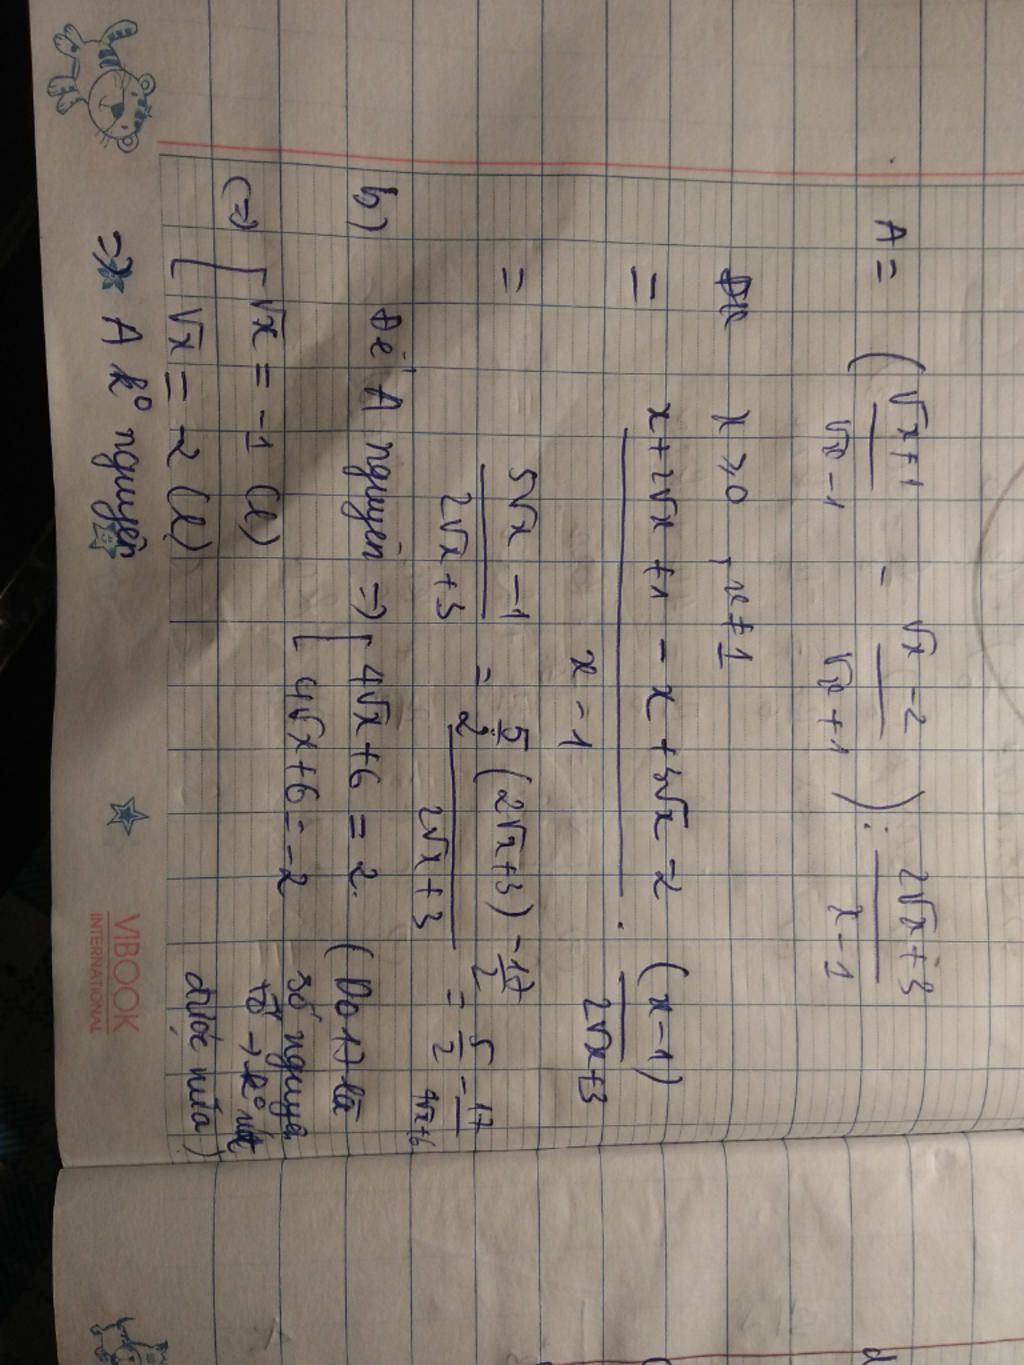 A = ( √x+1 / √x-1 - √x-2 / √x+1 ) : 2√x+3 / x-1
ĐK x ≥ 0, x ≠ 1
= x+2√x+1 - x+3√x-2 / x-1 . (x-1) / 2√x+3
= 5√x-1 / 2√x+3 = 5/2 (2√x+3) - 17/2 / 2√x+3 = 5/2 - 17 / 4√x+6
b) Để A nguyên => [ 4√x+6 = 2 (Do 17 là
[ 4√x+6 = -2 số nguyên
tố → k° rút
được nữa)
(=> [ √x = -1 (l)
[ √x = -2 (l)
=> A k° nguyên
VIBOOK
INTERNATIONAL